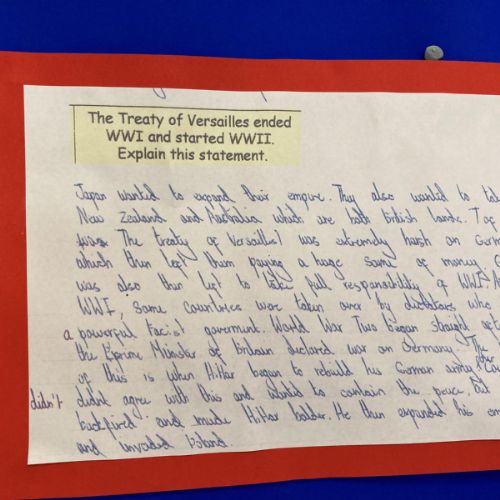 The Treaty of Versailles ended
WWI and started WWII.
Explain this statement.
Japan wanted to expand their empire. They also wanted to
New Zealand and Australia which are both British lands.
The treaty of Versailles was extremely harsh on
which then left them paying a huge sum of money.
was also then left to take full responsibility of WWI.
WWI, some countries were taken over by dictators who
a powerful Facist goverment. World War Two began straight
the Prime Minister of Britain declared war on Germany. The
of this is when Hitler began to rebuild his German army
didn't didnt agree with this and wanted to contain the peace, but
backfired and made Hitler bolder. He then expanded his
and invaded Poland.